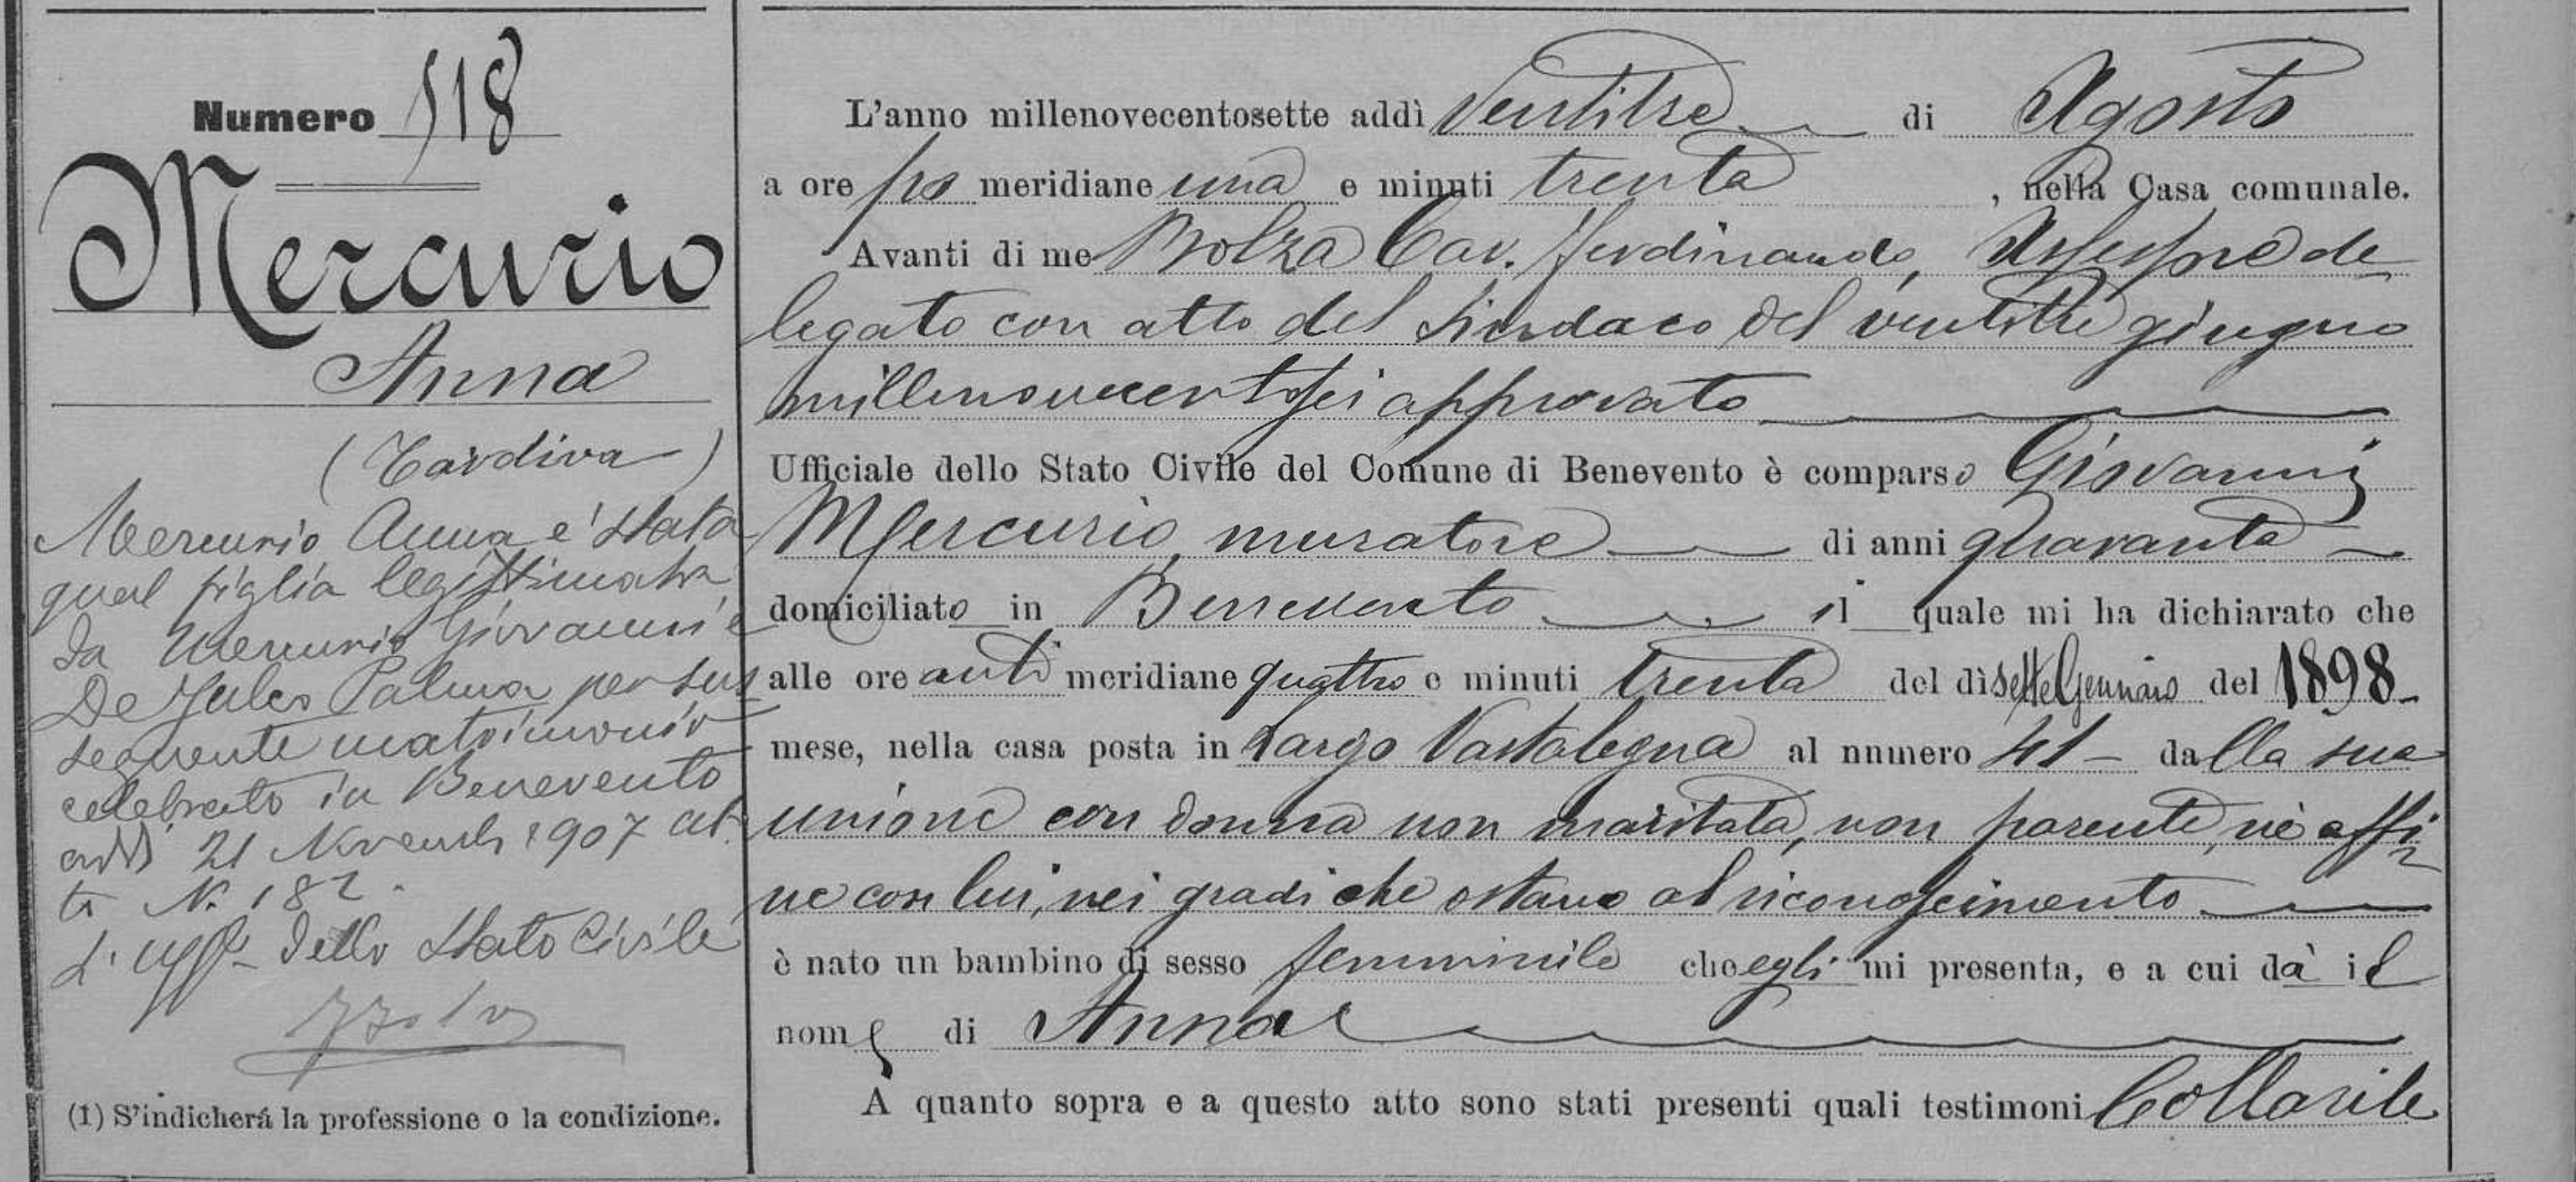 Numero 518
Mercurio
Anna
(Tardiva)
Mercurio Anna e' stata
qual figlia legittimata
da Mercurio Giovanni e
De Julio Palma per sus
seguente matrimonio
celebrato in Benevento
addì 21 Novembre 1907 at
to N. 182.
L'Uff. dello Stato Civile
(1) S'indicherá la professione o la condizione.
L'anno millenovecentosette addì Ventitre di Agosto
a ore po meridiane una e minuti trenta, nella Casa comunale.
Avanti di me Bolza Cav. Ferdinando, Assessore de
legato con atto del Sindaco del ventitre giugno
millenovecentosei approvato
Ufficiale dello Stato Civile del Comune di Benevento è comparso Giovanni
Mercurio, muratore di anni quaranta
domiciliato in Benevento il quale mi ha dichiarato che
alle ore anti meridiane quattro e minuti trenta del dì sette Gennaio del 1898
mese, nella casa posta in Largo Vastalegna al numero 41 - dalla sua
unione con donna non maritata, non parente, nè affi
ne con lui, nei gradi che ostano al riconoscimento
è nato un bambino di sesso femminile che egli mi presenta, e a cui dà il
nome di Anna
A quanto sopra e a questo atto sono stati presenti quali testimoni Collarile